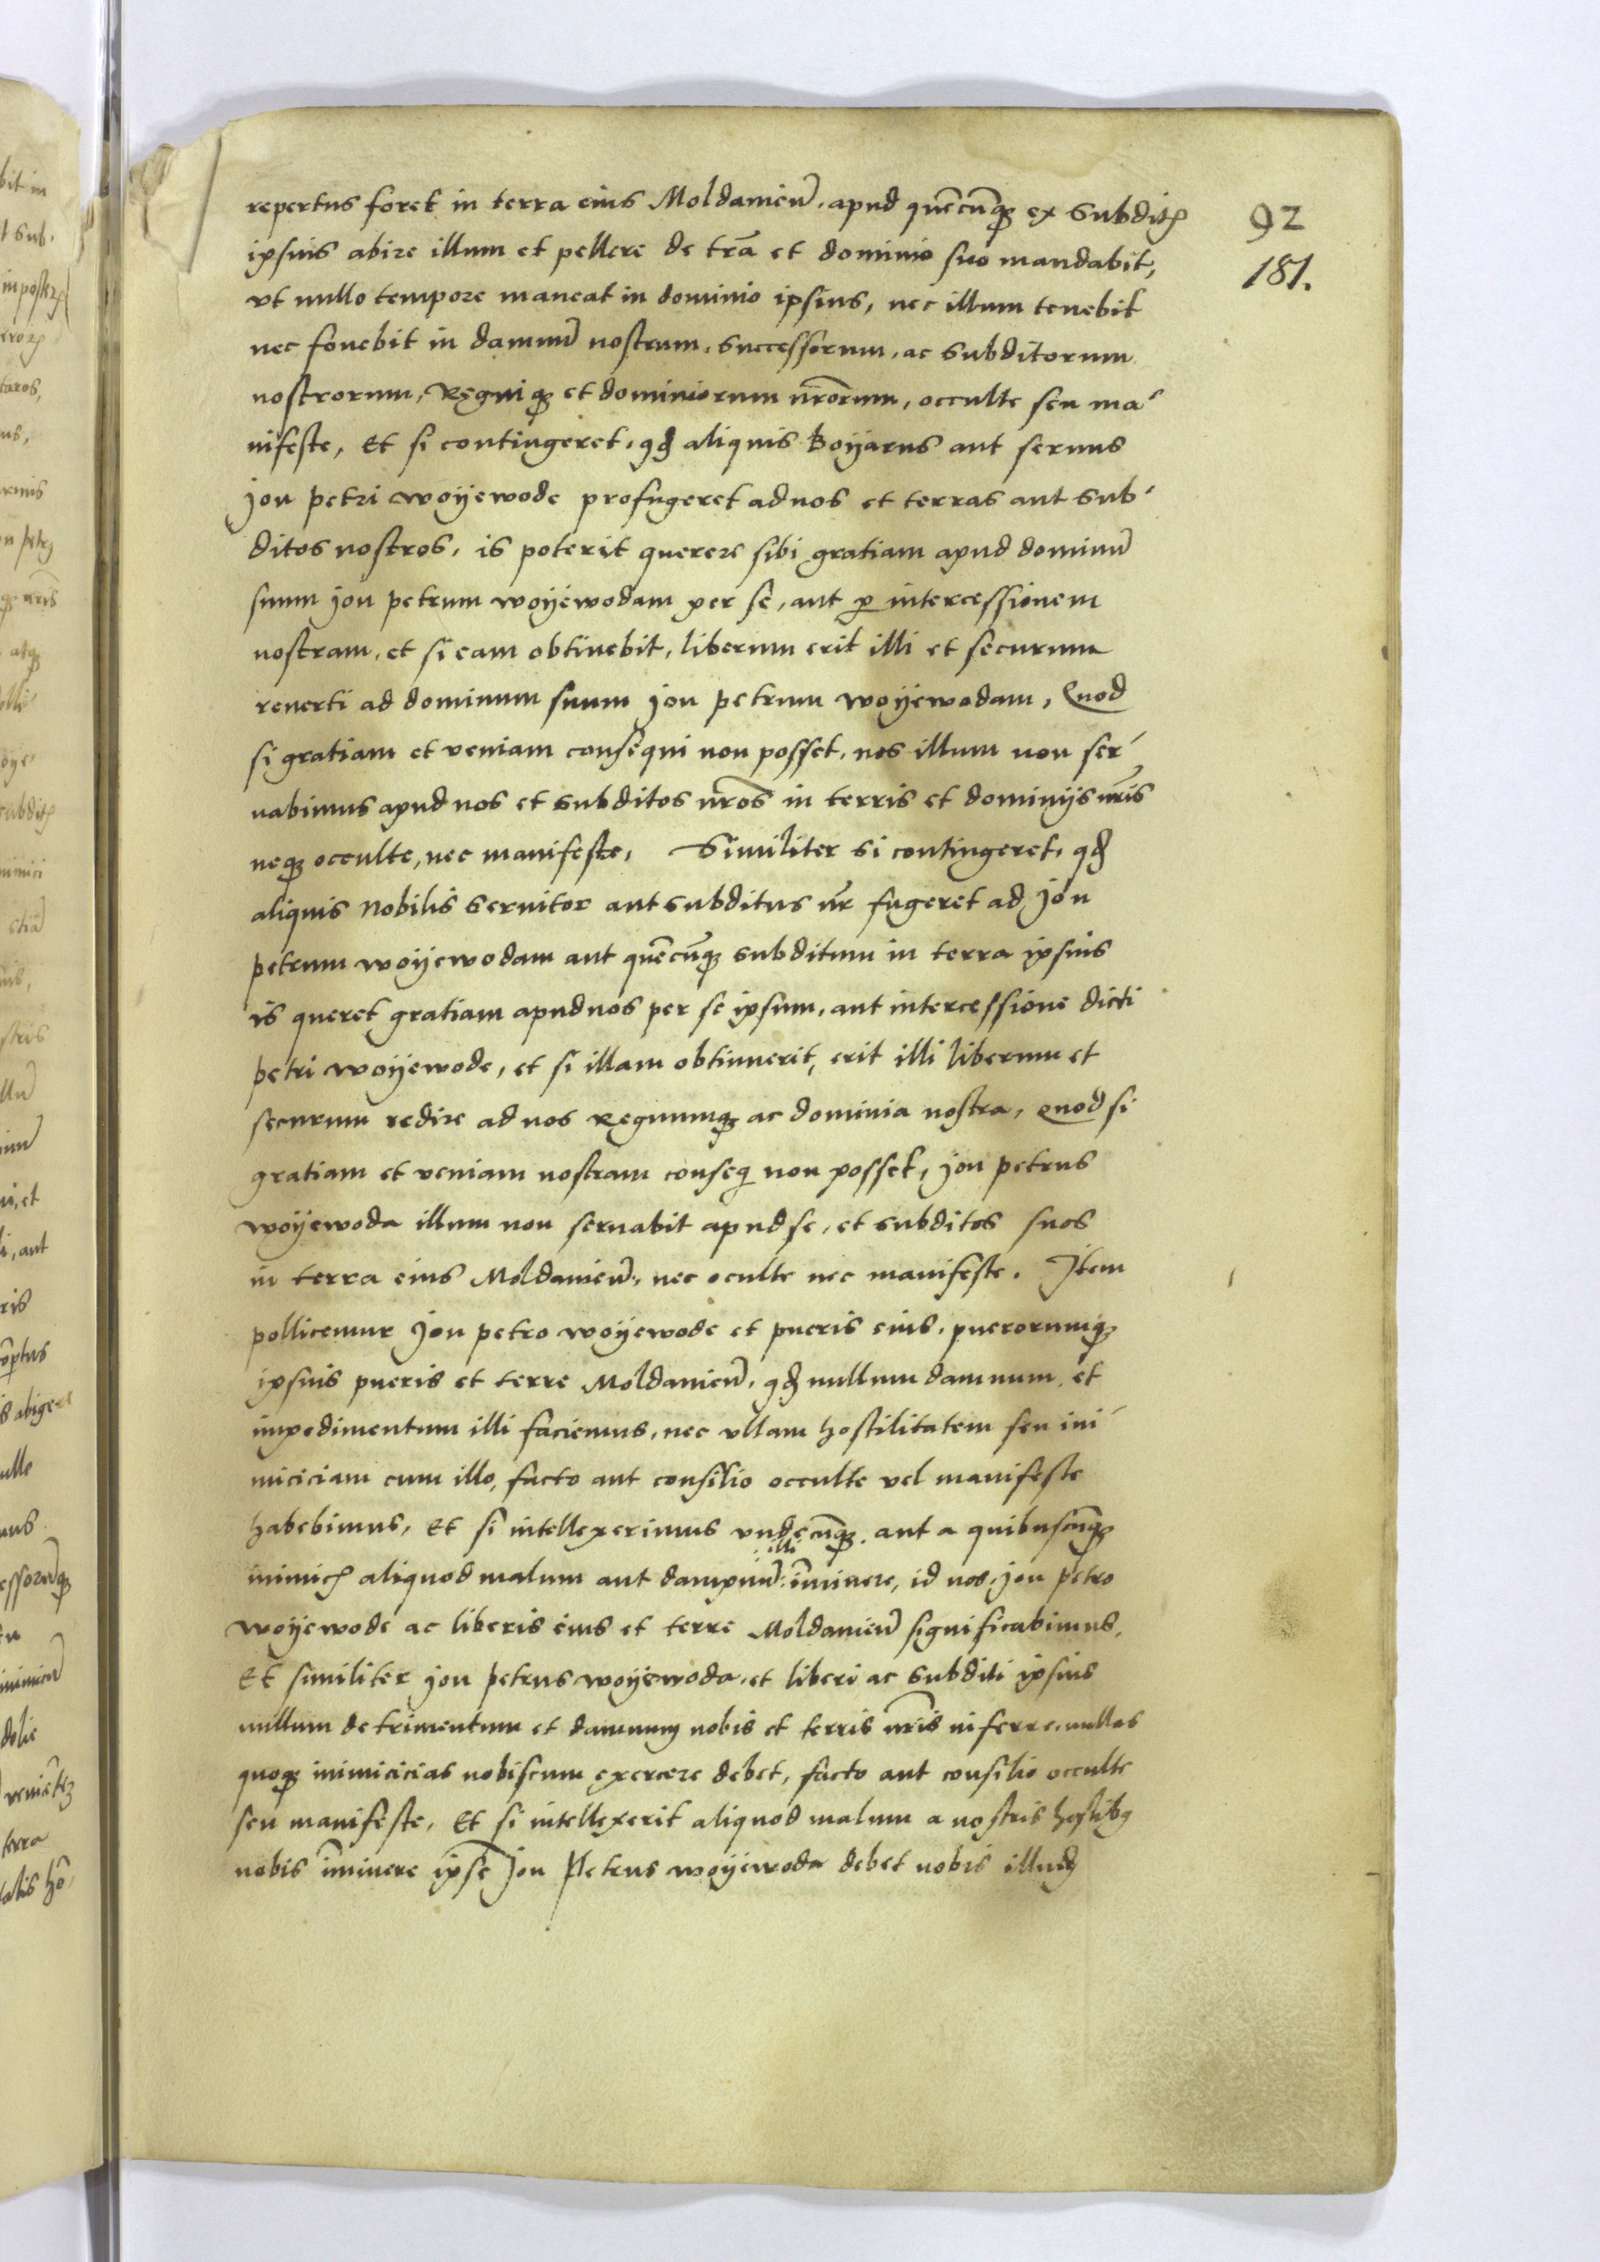 repertus foret in terra eius Moldaviēn̄, apud quēcūq̨ ex subditꝭ
ipsius abire illum et pellere de tr̄a et dominio suo mandabit,
vt nullo tempore maneat in dominio ipsius, nec illum tenebit
nec fovebit in damnū nostrum, successorum, ac subditorum
nostrorum, Regniq̨ et dominiorum nr̄orum, occulte seu ma-
nifeste, Et si contingeret, qđ aliquis Boyarus aut servus
Jon petri woyewode profugeret ad nos et terras aut sub-
ditos nostros, is poterit querere sibi gratiam apud dominū
suum Jon petrum woyewodam per se, aut ꝑ intercessionem
nostram, et si eam obtinebit, liberum erit illi et securum
reverti ad dominum suum Jon petrum woyewodam, Quod
si gratiam et veniam consequi non posset, nos illum non ser-
vabimus apud nos et subditos nr̄os in terris et dominijs nr̄is
neq̨ occulte, nec manifeste, Similiter si contingeret, qđ
aliquis Nobilis servitor aut subditus nr̄ fugeret ad Jon
petrum woyewodam aut quēcūq̨ subditum in terra ipsius
is queret gratiam apud nos per se ipsum, aut intercessione dicti
petri woyewode, et si illam obtinuerit, erit illi liberum et
securum redire ad nos Regnumq̨ ac dominia nostra, Quod si
gratiam et veniam nostram conseq̄ non posset, Jon petrus
woyewoda illum non servabit apud se, et subditos suos
in terra eius Moldaviēn̄, nec oculte nec manifeste. Item
pollicemur Jon petro woyewode et pueris eius, puerorumq̨
ipsius pueris et terre Moldaviēn̄, qđ nullum damnum et
impedimentum illi faciemus, nec vllam hostilitatem seu ini-
miciciam cum illo, facto aut consilio occulte vel manifeste
habebimus, Et si intellexerimus vndecūq̨ aut a quibuscūq̨
inimicꝭ aliquod malum aut dampnū illi īminere, id nos Jon petro
woyewode ac liberis eius et terre Moldaviēn̄ significabimus,
Et similiter Jon petrus woyewoda et liberi ac subditi ipsius
nullum detrimentum et damnum nobis et terris nr̄is inferre, nullas
quoq̨ inimicicias nobiscum exercere debet, facto aut consilio occulte
seu manifeste, Et si intellexerit aliquod malum a nostris hostibꝰ
nobis īminere ipse Jon Petrus woyewoda debet nobis illud
92
181.